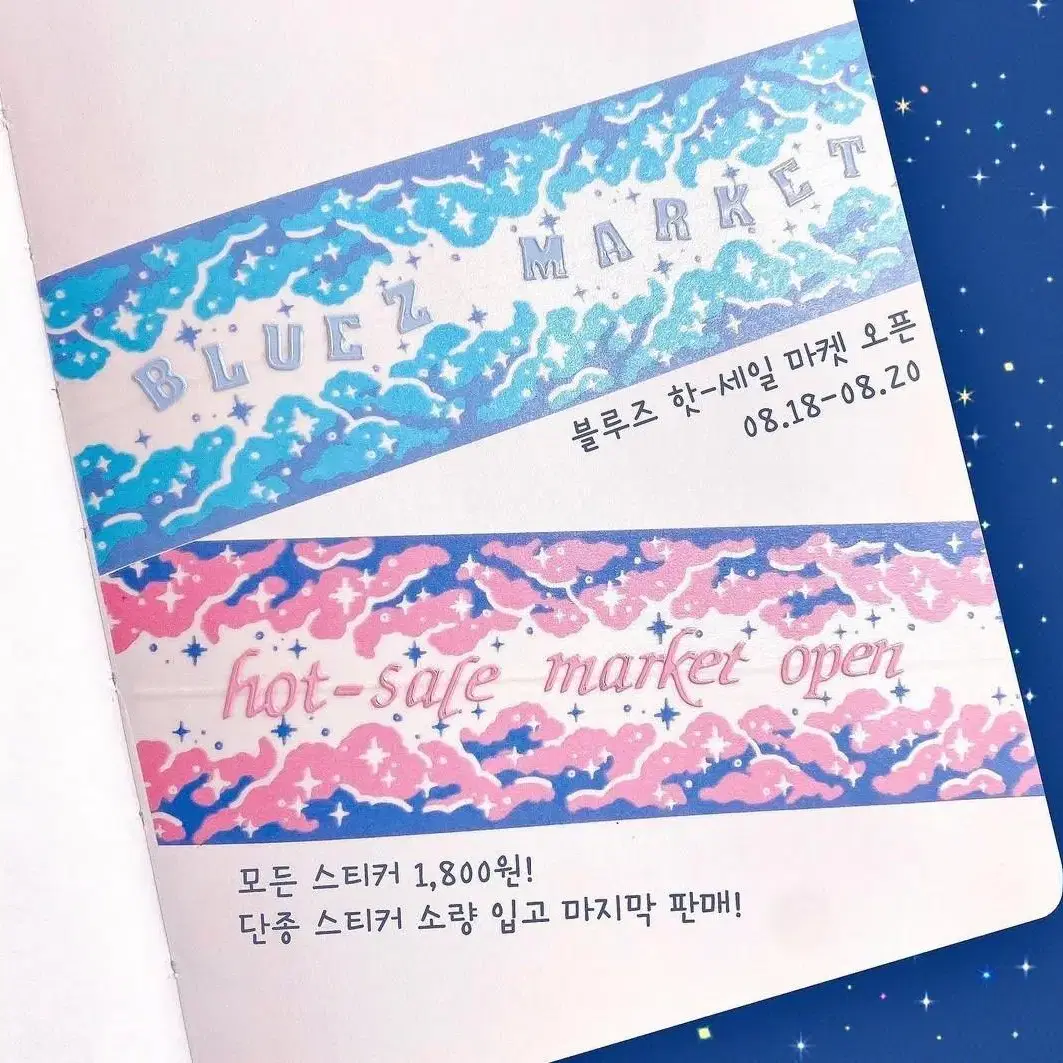 BLUEZ MARKET
블루즈 핫-세일 마켓 오픈
08.18-08.20
hot-sale market open
모든 스티커 1,800원!
단종 스티커 소량 입고 마지막 판매!